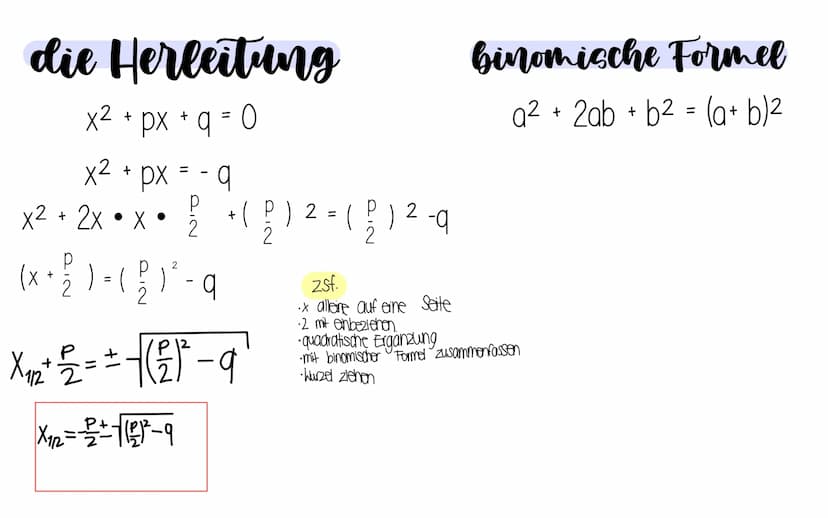 die Herleitung
x² + px + q = 0
x² + px = - q
x² + 2x • x • p/2 + ( p/2 ) 2 = ( p/2 ) 2 -q
(x + p/2 ) = ( p/2 )² - q
X1/2 + p/2 = ± √(p/2)² - q
X1/2 = - p/2 ± √(p/2)² - q
binomische Formel
a² + 2ab + b² = (a+ b)2
zsf.
·x alleine auf eine Seite
·2 mit einbeziehen
·quadratische Ergänzung
·mit binomischer Formel zusammenfassen
·Wurzel ziehen